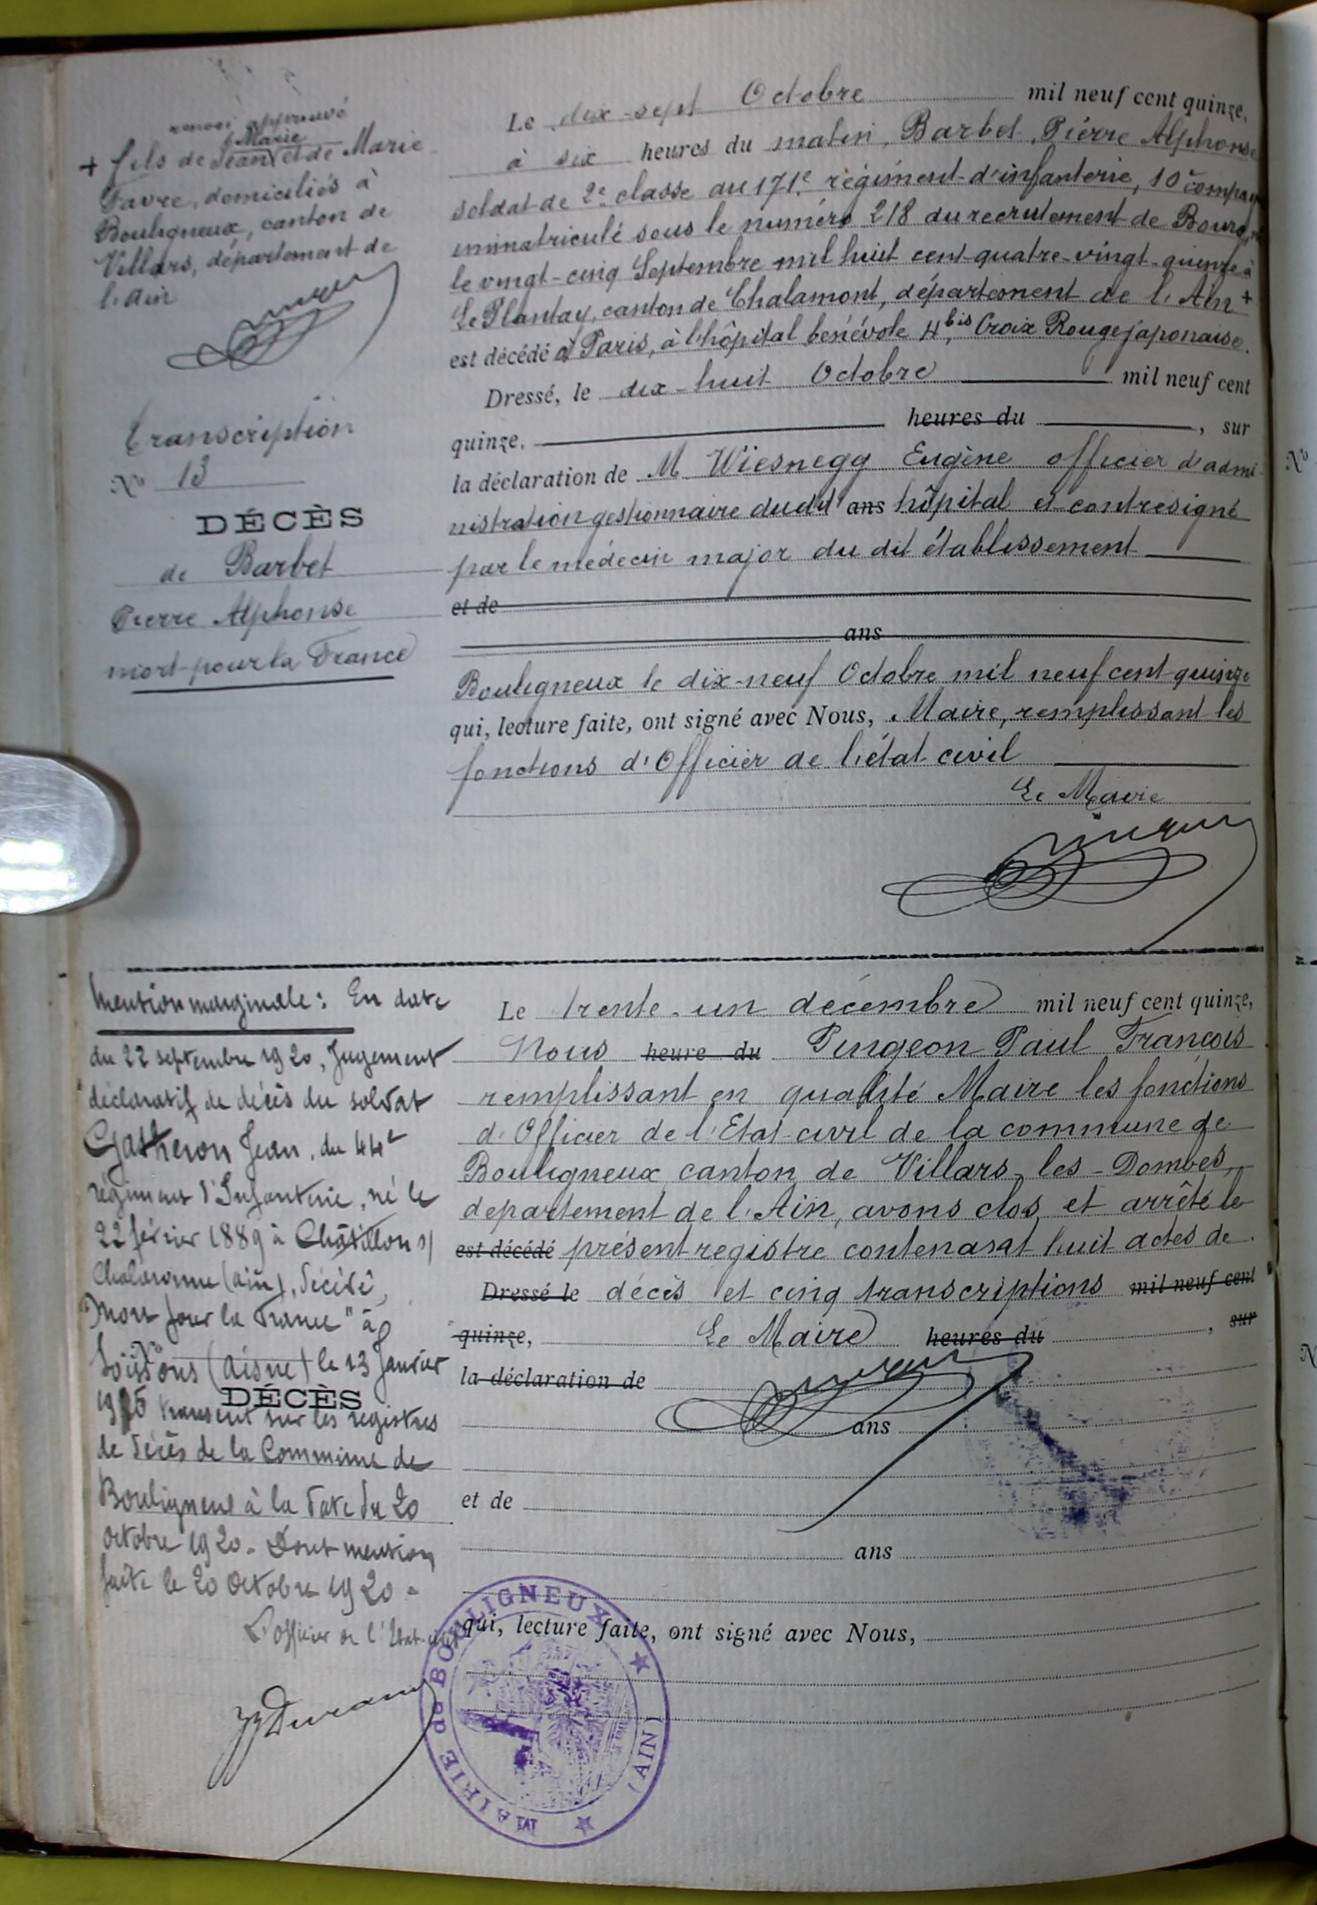 renvoi approuvé
Marie
+ fils de Jean et de Marie
Favre, domiciliés à
Bouligneux, canton de
Villars, département de
l'Ain
Transcription
N° 13
DÉCÈS
de Barbet
Pierre Alphonse
mort pour la France
Le dix-sept Octobre mil neuf cent quinze,
à six heures du matin, Barbet, Pierre Alphonse
soldat de 2e classe au 171e régiment d'infanterie, 10e compagnie
immatriculé sous le numéro 218 du recrutement de Bourg,
le vingt-cinq Septembre mil huit cent quatre-vingt-quinze à
Le Plantay, canton de Chalamont, département de l'Ain +
est décédé à Paris, à l'hôpital bénévole 4bis, Croix Rouge japonaise.
Dressé, le dix-huit Octobre mil neuf cent
quinze, heures du , sur
la déclaration de M Wiesnegg Eugène officier d'admi-
nistration gestionnaire dudit ans hôpital et contresigné
par le médecin major du dit établissement
et de
ans
Bouligneux le dix-neuf Octobre mil neuf cent quinze
qui, lecture faite, ont signé avec Nous, Maire, remplissant les
fonctions d'Officier de l'état civil
Le Maire
Mention marginale : En date
du 22 septembre 1920, Jugement
déclaratif de décès du soldat
Jean, du 44e
régiment d'Infanterie, né le
22 février 1889 à Châtillon s/
Chalaronne (Ain), décédé
"Mort pour la France" à
Soissons (Aisne) le 13 Janvier
1915 transcrit sur les registres
N°
DÉCÈS
de décès de la Commune de
Bouligneux à la date du 20
octobre 1920. Dont mention
faite le 20 Octobre 1920.
L'officier de l'Etat-civil
Le trente-un décembre mil neuf cent quinze,
Nous heure du Pingeon Paul François
remplissant en qualité Maire les fonctions
d'Officier de l'Etat-civil de la commune de
Bouligneux canton de Villars-les-Dombes,
département de l'Ain, avons clos et arrêté le
est décédé présent registre contenant huit actes de
Dressé le décès et cinq transcriptions mil neuf cent
quinze, Le Maire heures du , sur
la déclaration de
ans
et de
ans
qui, lecture faite, ont signé avec Nous,
MAIRIE de BOULIGNEUX
(AIN)